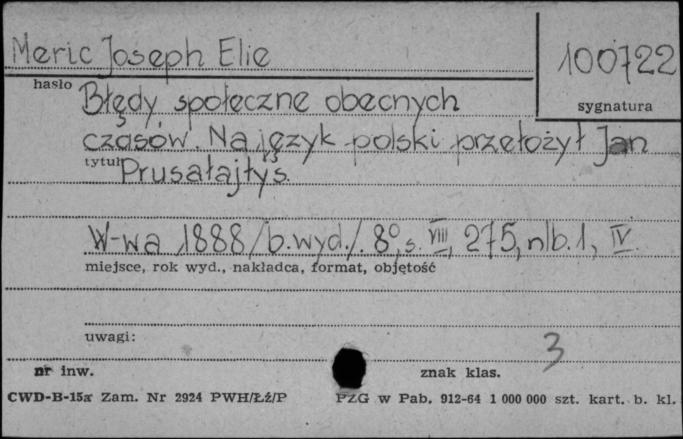 Meric Joseph Elie
100722
hasło
sygnatura
Błędy społeczne obecnych
czasów. Na język polski przełożył Jan
tytuł
Prusałajtys.
W-wa 1888 /b. wyd./. 8°, s. VIII, 275, nlb. 1, IV.
miejsce, rok wyd., nakładca, format, objętość
uwagi:
3
nr inw.
znak klas.
CWD-B-15a Zam. Nr 2924 PWH/Łź/P
PZG w Pab. 912-64 1 000 000 szt. kart. b. kl.